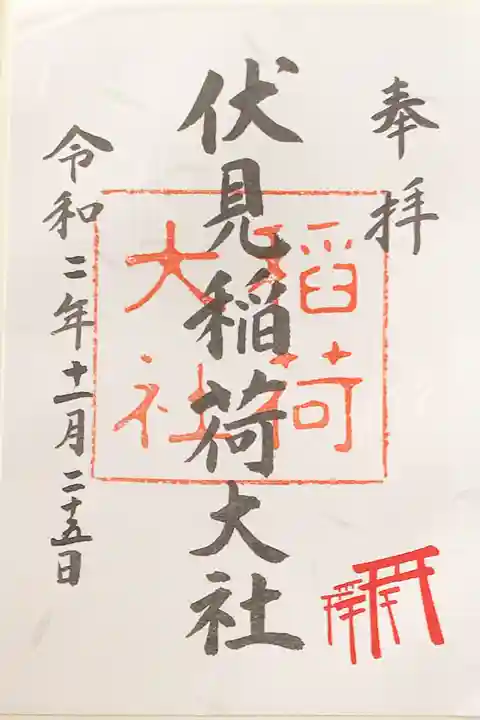 奉拝
伏見稲荷大社
稲荷
大社
令和二年十一月二十五日